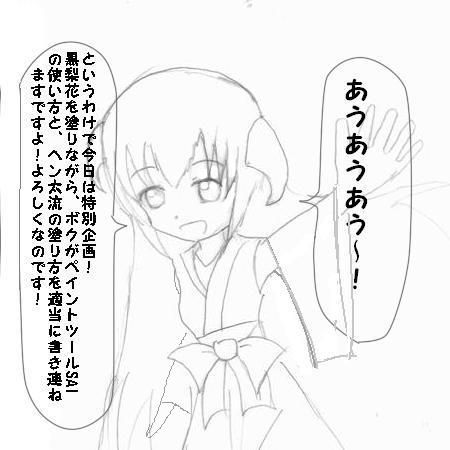 あうあうあう～！
というわけで今日は特別企画！
黒梨花を塗りながら、ボクがペイントツールSAI
の使い方と、ヘン太流の塗り方を適当に書き連ね
ますですよ！よろしくなのです！